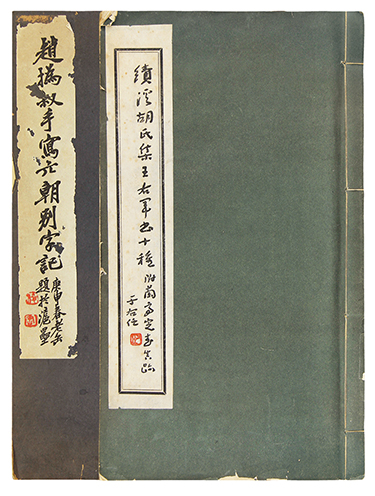 績溪胡氏集王右軍書十種附蘭亭
于右任
趙撝叔手寫六朝別字記
庚申春老缶
題於滬壘